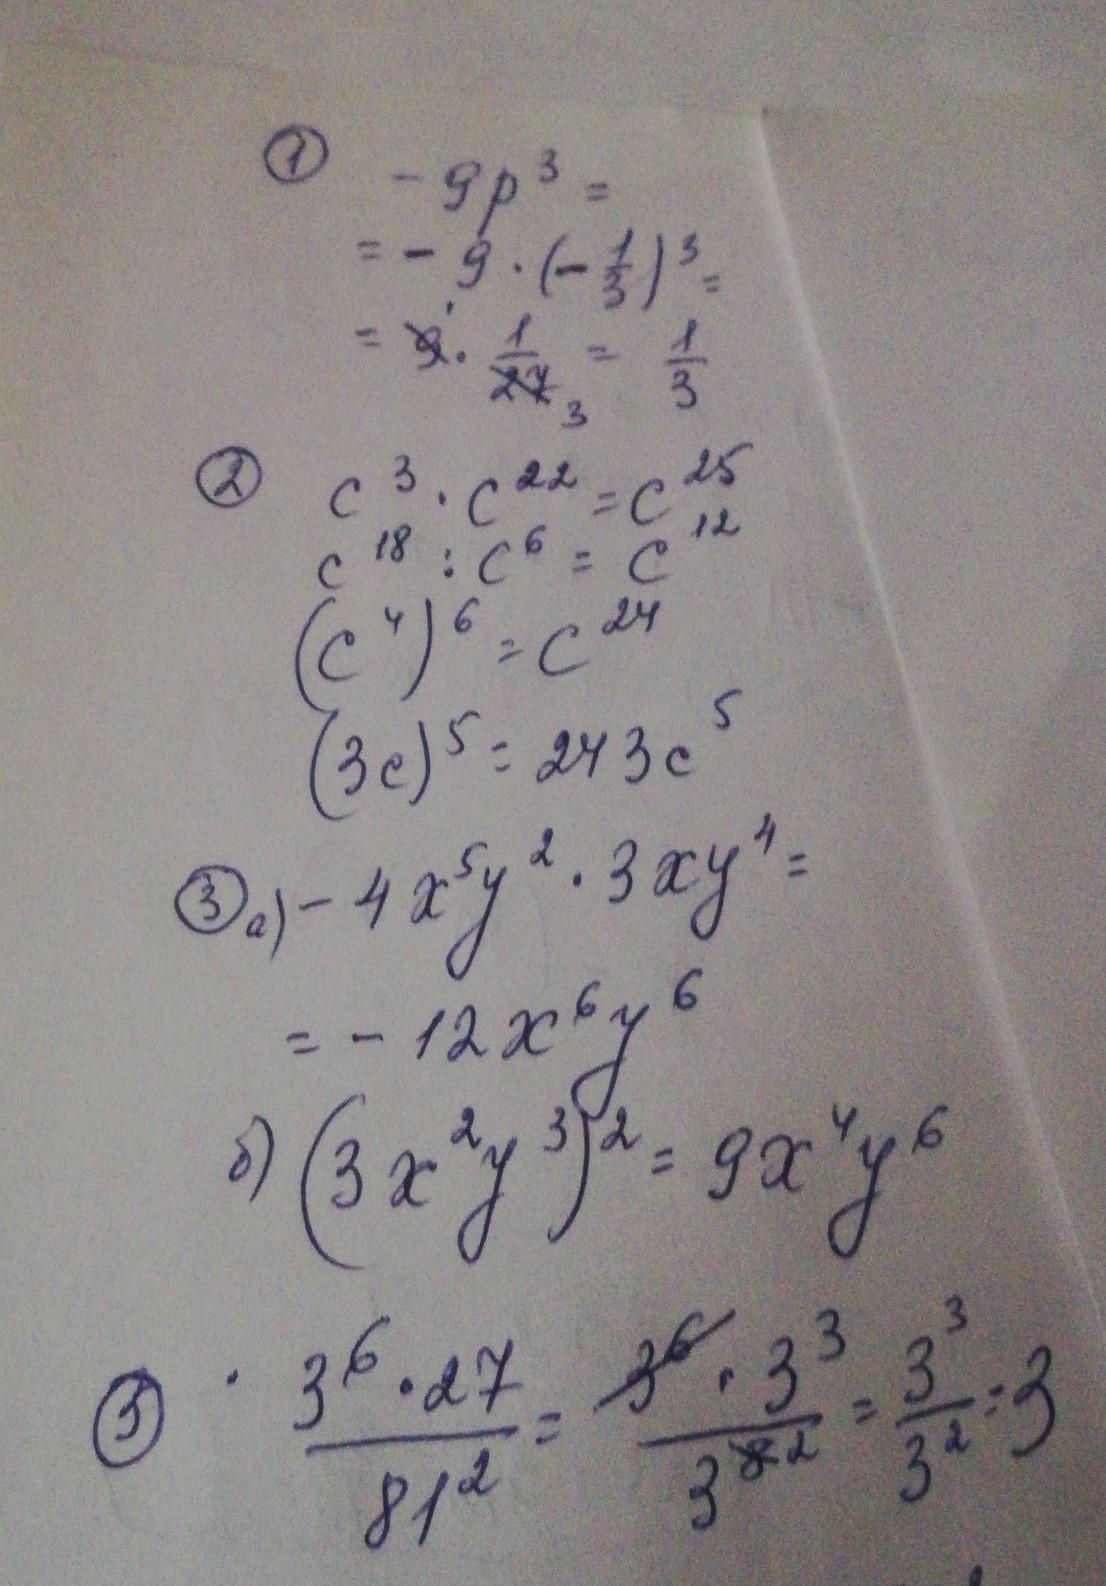 ① -9p³ =
= -9 · (-1/3)³ =
= 9¹ · 1/27₃ = 1/3
② c³ · c²² = c²⁵
c¹⁸ : c⁶ = c¹²
(c⁴)⁶ = c²⁴
(3c)⁵ = 243c⁵
③ а) -4x⁵y² · 3xy⁴ =
= -12x⁶y⁶
б) (3x²y³)² = 9x⁴y⁶
⑤ · 3⁶ · 27 / 81² = 3⁶ · 3³ / 3⁸ ² = 3³ / 3² = 3